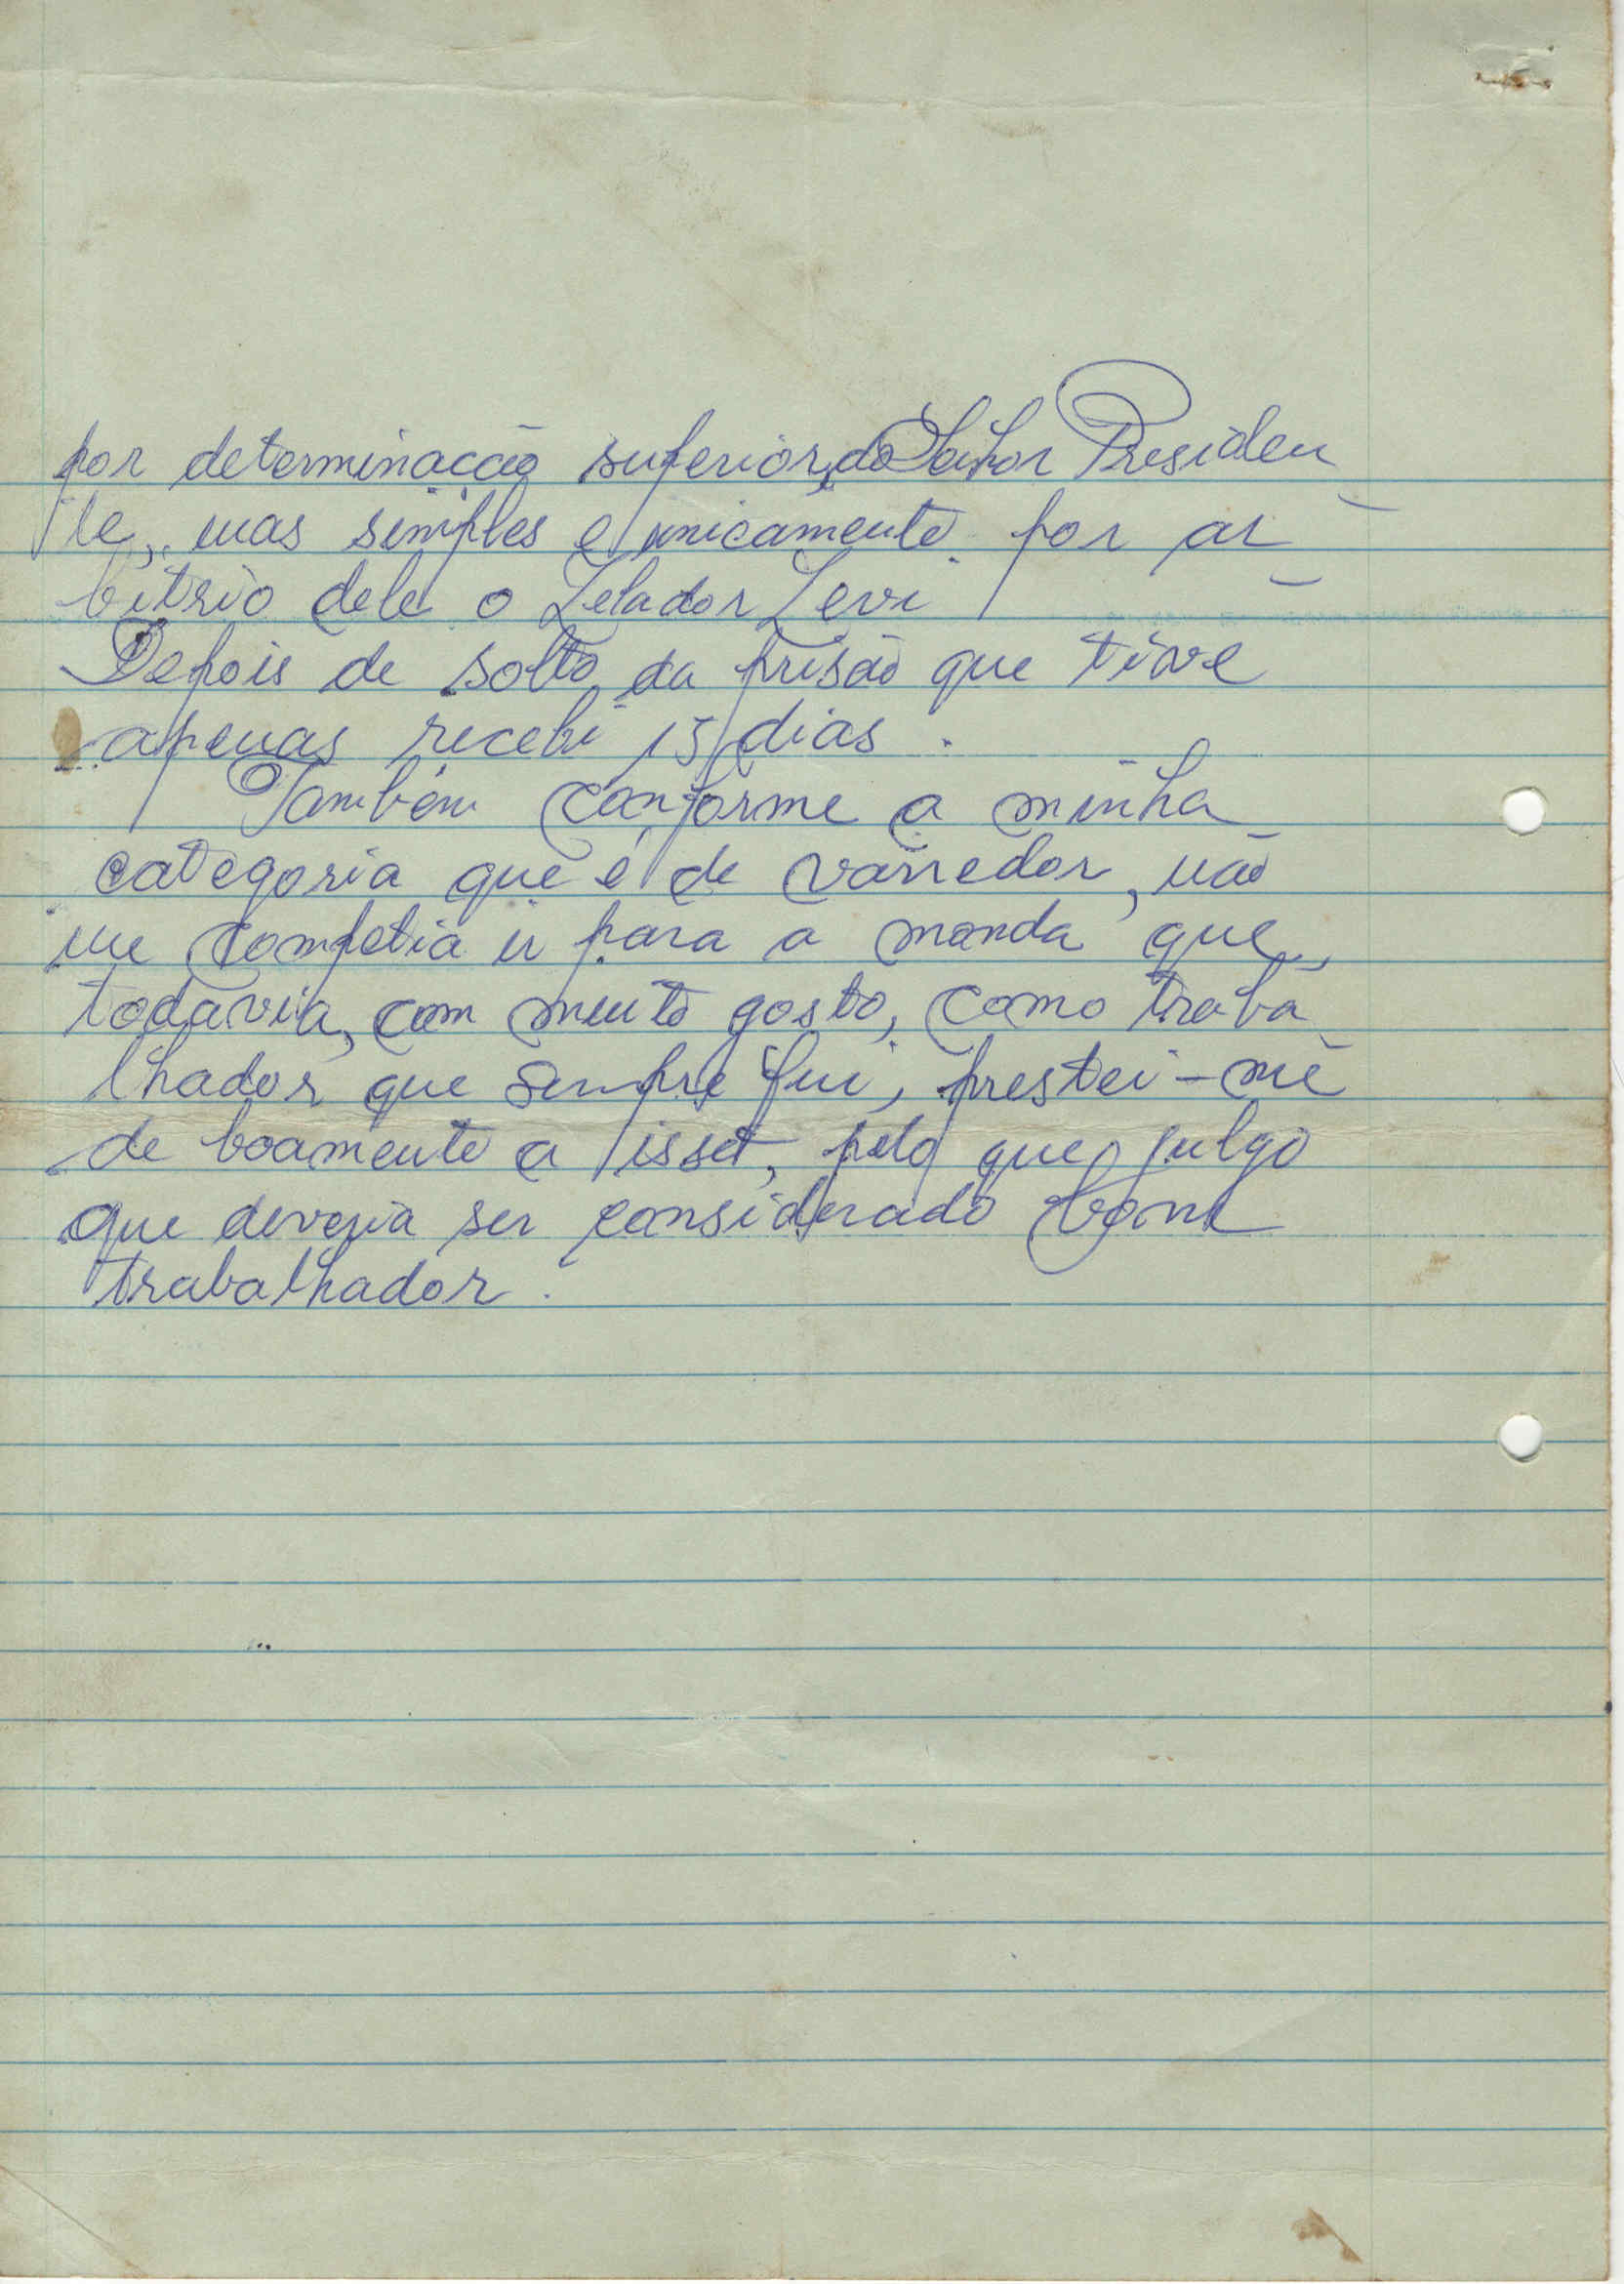 por determinação superior, do Senhor Presiden
te, mas simples e unicamente por ar
bitrio dele o Zelador Levi
Depois de solto da prisão que tive
apenas recebi 15 dias.
Também conforme a minha
categoria que é de varredor, não
me competia ir para a monda que,
todavia, com muito gosto, como traba
lhador que sempre fui, prestei-me
de boamente a isso, pelo que julgo
que deveria ser considerado bom
trabalhador.